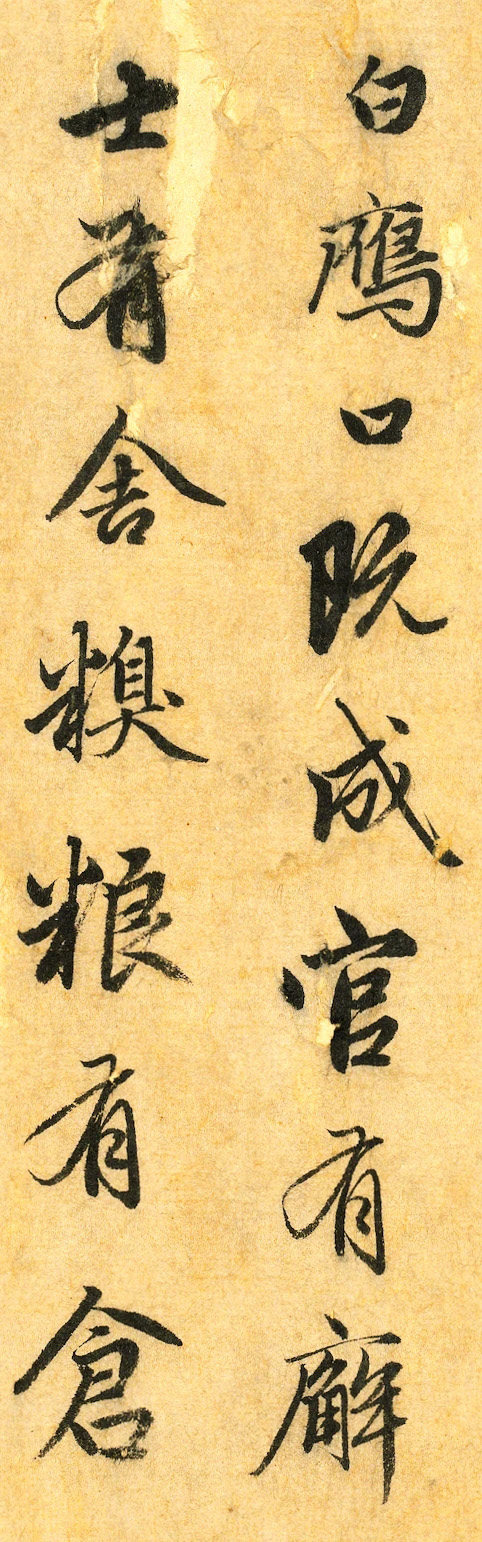 白鷹口既成官有廨
士有舍糗粮有倉